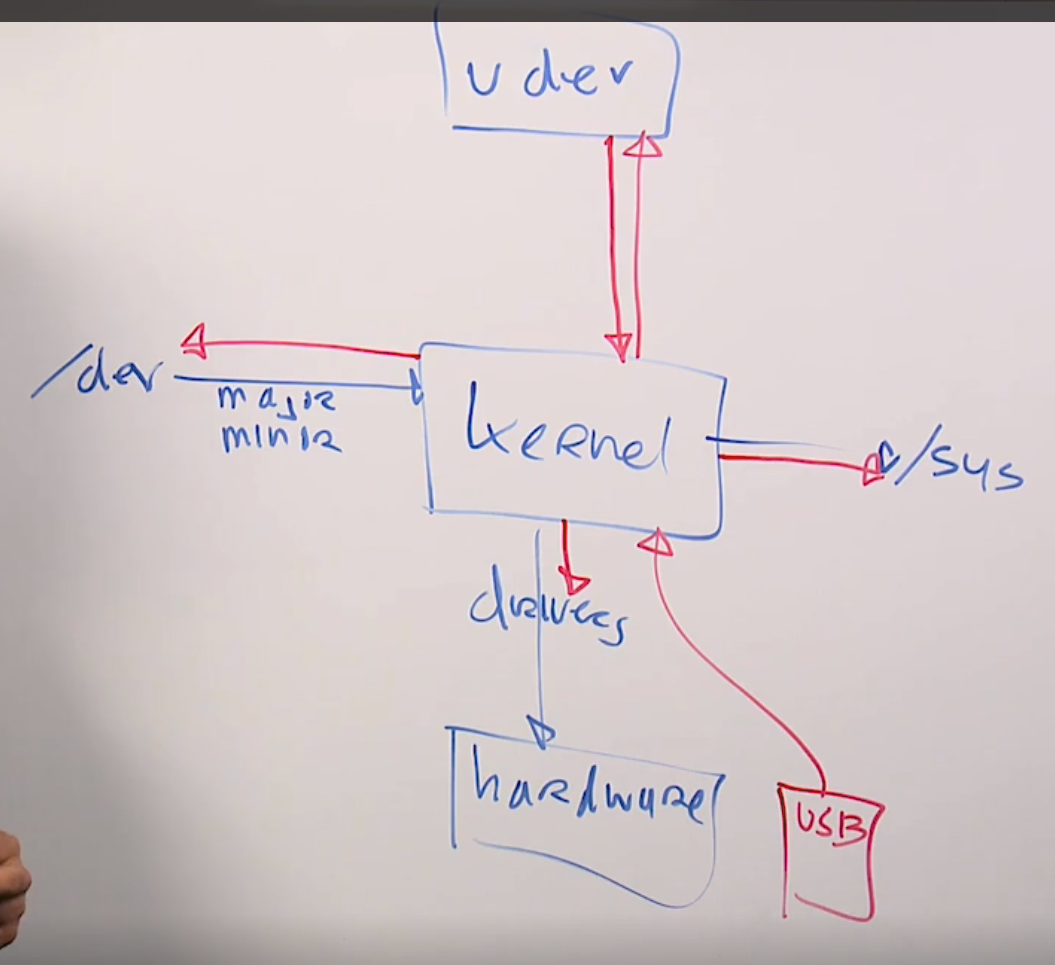 udev
/dev
major
minor
kernel
/sys
drivers
hardware
USB